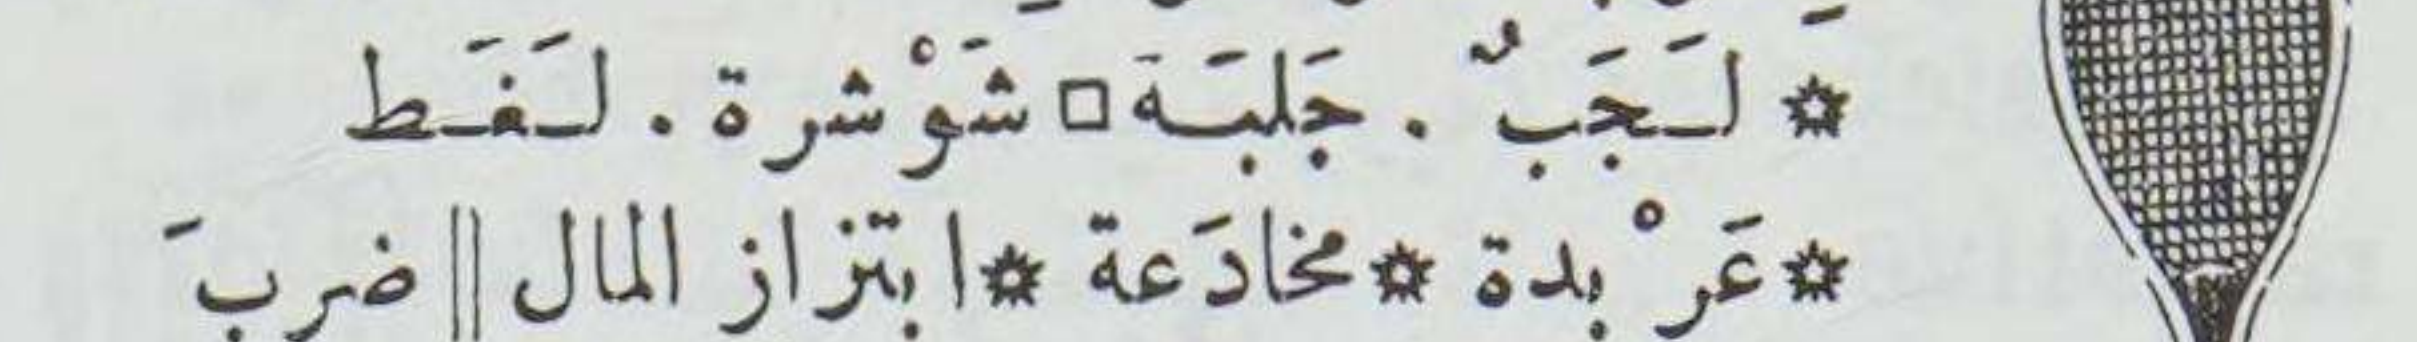 ✡ لَجَبٌ . جَلبَة □ شَوْشرة . لَغَط
✡ عَرْبدة ✡ مخادَعة ✡ ابتزاز المال || ضربَ